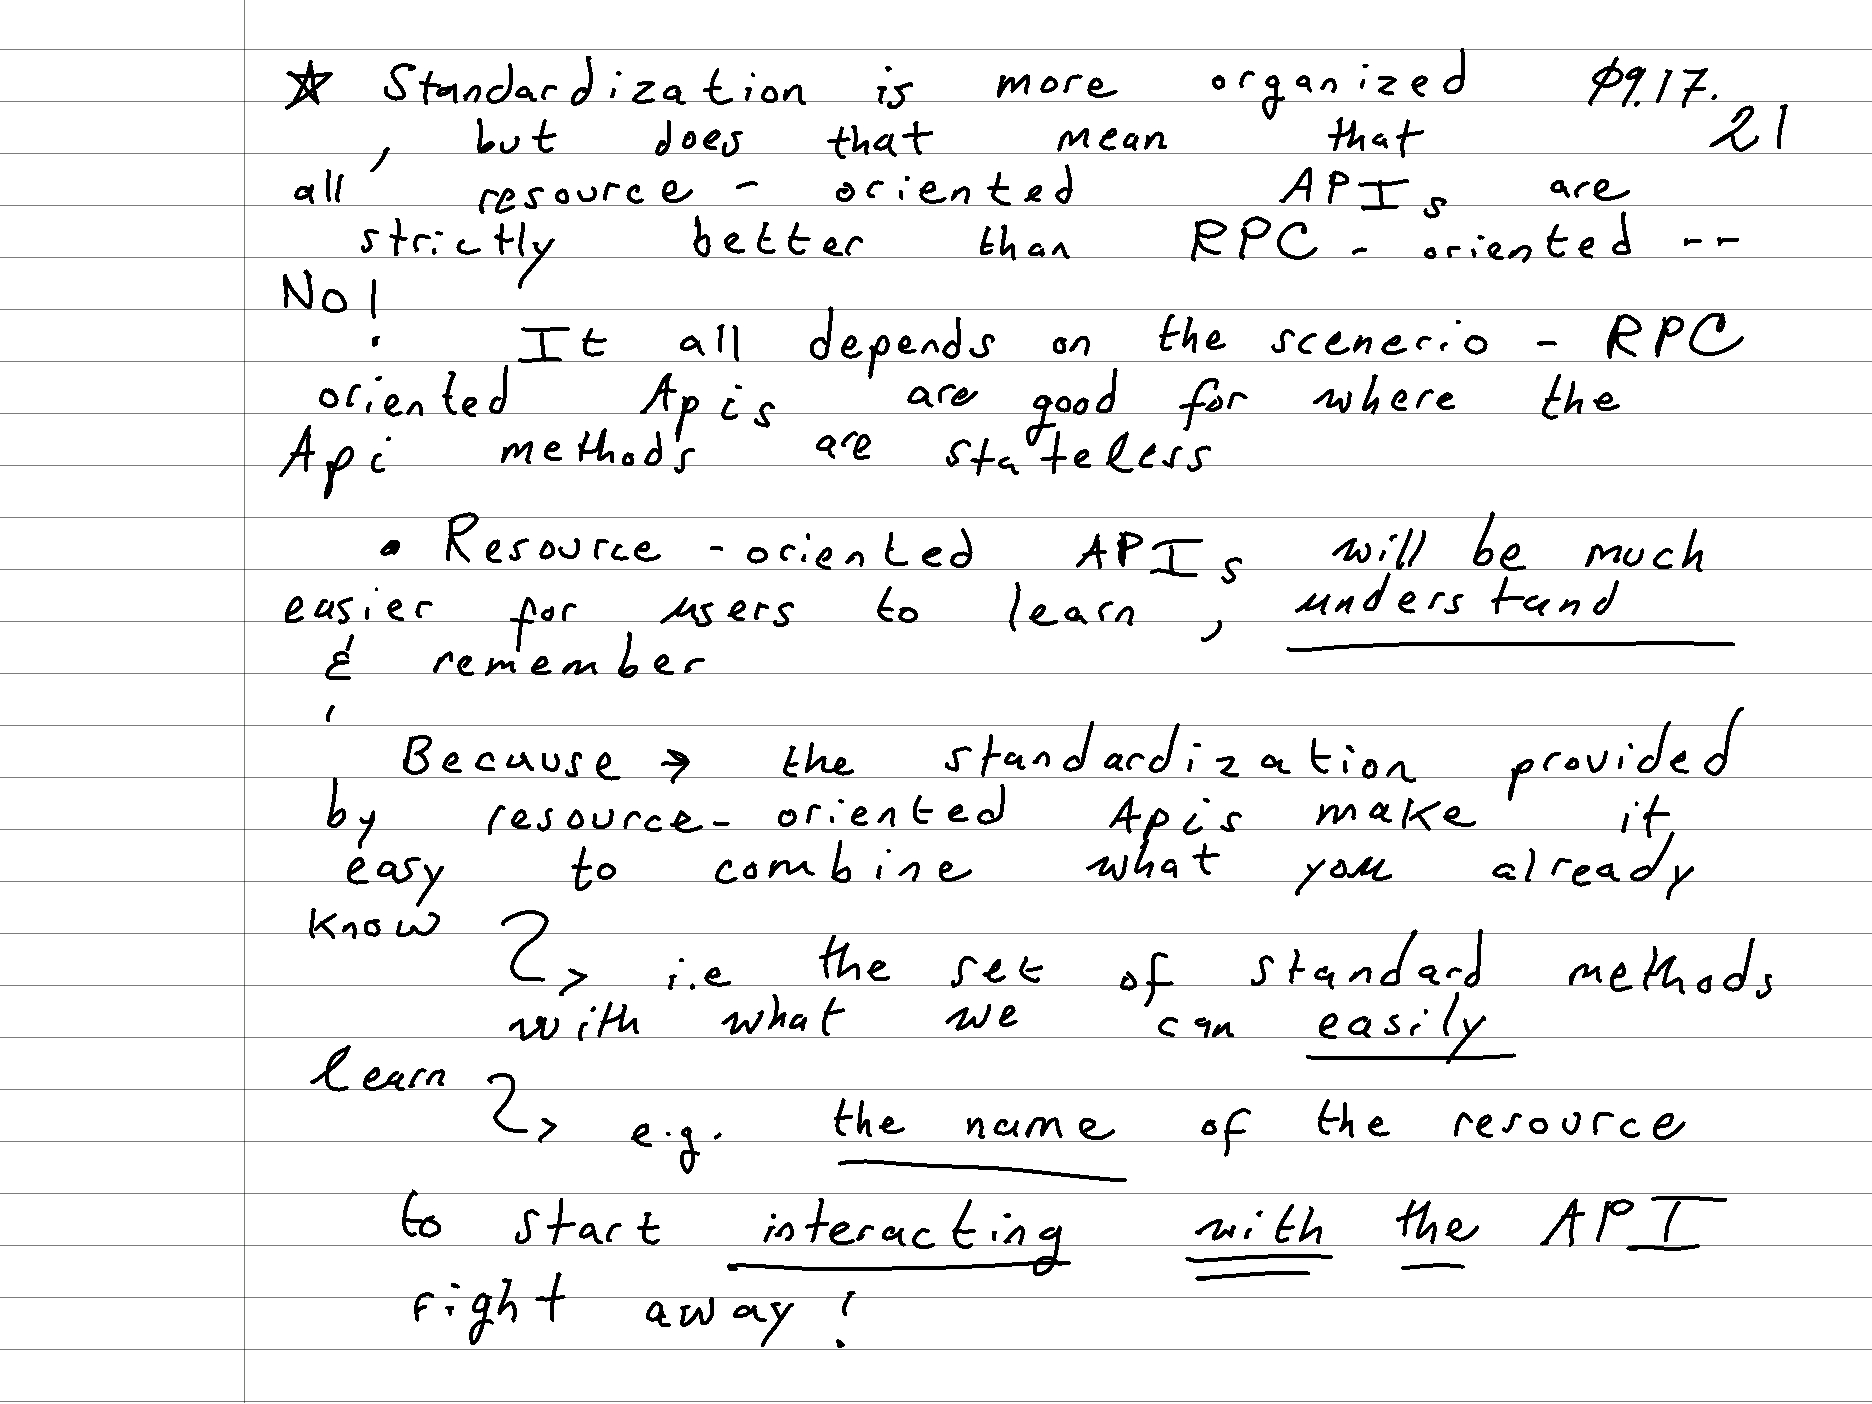 ☆ Standardization is more organized 09.17.
, but does that mean that 21
all resource - oriented APIs are
strictly better than RPC - oriented --
No!
It all depends on the scenerio - RPC
oriented Apis are good for where the
Api methods are stateless
• Resource - oriented APIs will be much
easier for users to learn, understand
& remember
Because → the standardization provided
by resource - oriented Apis make it
easy to combine what you already
know
↳ i.e the set of standard methods
with what we can easily
learn
↳ e.g. the name of the resource
to start interacting with the API
right away!